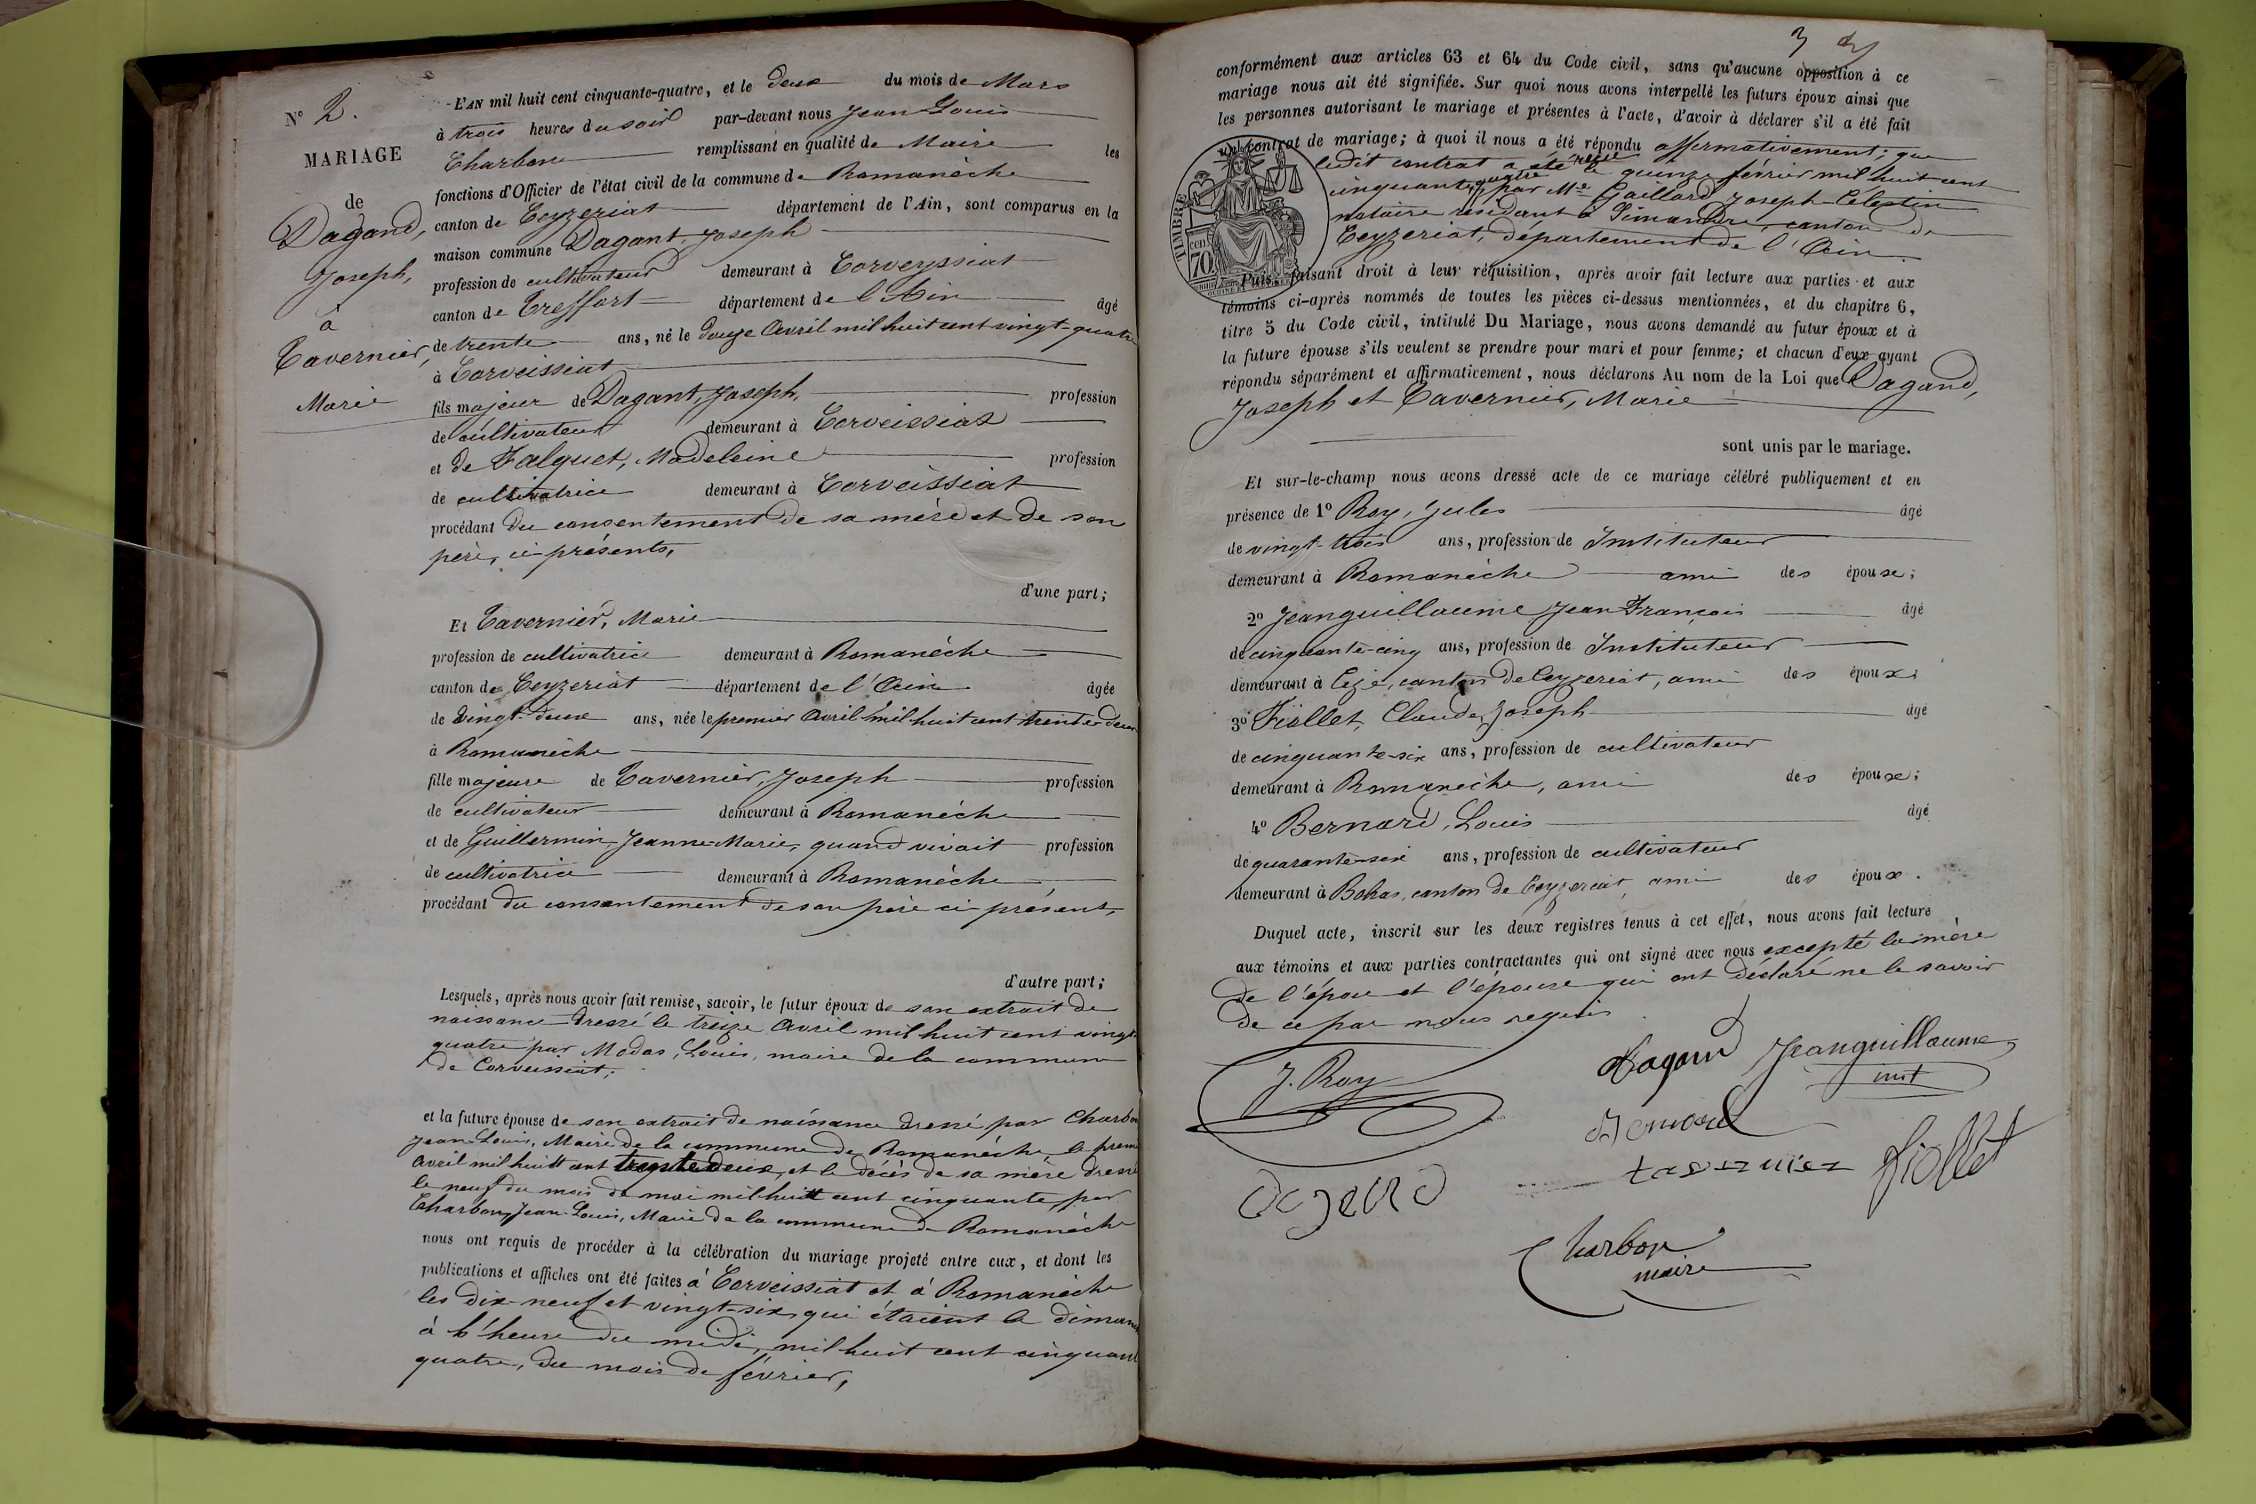 N° 2.
MARIAGE
de
Dagand,
Joseph,
à
Tavernier,
Marie
L'AN mil huit cent cinquante-quatre, et le deux du mois de Mars
à trois heures du soir par-devant nous Jean Louis
Charbon remplissant en qualité de Maire les
fonctions d'Officier de l'état civil de la commune de Romanèche
canton de Ceyzeriat département de l'Ain, sont comparus en la
maison commune Dagant, Joseph
profession de cultivateur demeurant à Corveyssiat
canton de Treffort département de l'Ain âgé
de trente ans, né le douze Avril mil huit cent vingt-quatre
à Corveissiat
fils majeur de Dagant, Joseph, profession
de cultivateur demeurant à Corveissiat
et de Falquet, Madeleine profession
de cultivatrice demeurant à Corveissiat
procédant du consentement de sa mère et de son
père, ci-présents,
d'une part;
Et Tavernier, Marie
profession de cultivatrice demeurant à Romanèche
canton de Ceyzeriat département de l'Ain âgée
de vingt-deux ans, née le premier Avril mil huit cent trente-deux
à Romanèche
fille majeure de Tavernier, Joseph profession
de cultivateur demeurant à Romanèche
et de Guillermin, Jeanne-Marie, quand vivait profession
de cultivatrice demeurant à Romanèche,
procédant du consentement de son père ci-présent,
d'autre part;
Lesquels, après nous avoir fait remise, savoir, le futur époux de son extrait de
naissance dressé le treize Avril mil huit cent vingt-
quatre par Modas, Louis, maire de la commune
de Corveissiat;
et la future épouse de son extrait de naissance dressé par Charbon
Jean-Louis, Maire de la commune de Romanèche le premier
Avril mil huit cent trente deux, et le décès de sa mère dressé
le neuf du mois de mai mil huit cent cinquante, par
Charbon, Jean-Louis, Maire de la commune de Romanèche
nous ont requis de procéder à la célébration du mariage projeté entre eux, et dont les
publications et affiches ont été faites à Corveissiat et à Romanèche
les dix-neuf et vingt-six, qui étaient le dimanche
à l'heure du midi, mil huit cent cinquante
quatre, du mois de février,
3
conformément aux articles 63 et 64 du Code civil, sans qu'aucune opposition à ce
mariage nous ait été signifiée. Sur quoi nous avons interpellé les futurs époux ainsi que
les personnes autorisant le mariage et présentes à l'acte, d'avoir à déclarer s'il a été fait
un contrat de mariage; à quoi il nous a été répondu affirmativement; que
ledit contrat a été reçu le quinze février mil huit cent
cinquante quatre par Me Gaillard Joseph-Célestin
notaire résidant à Simandre, canton de
Ceyzeriat, département de l'Ain.
TIMBRE
cen
70.
Puis, faisant droit à leur réquisition, après avoir fait lecture aux parties et aux
témoins ci-après nommés de toutes les pièces ci-dessus mentionnées, et du chapitre 6,
titre 5 du Code civil, intitulé Du Mariage, nous avons demandé au futur époux et à
la future épouse s'ils veulent se prendre pour mari et pour femme; et chacun d'eux ayant
répondu séparément et affirmativement, nous déclarons Au nom de la Loi que Dagand,
Joseph et Tavernier, Marie
sont unis par le mariage.
Et sur-le-champ nous avons dressé acte de ce mariage célébré publiquement et en
présence de 1° Roy, Jules âgé
de vingt-trois ans, profession de Instituteur
demeurant à Romanèche ami des époux;
2° Jeanguillaume Jean François âgé
de cinquante-cinq ans, profession de Instituteur
demeurant à Cize, canton de Ceyzeriat, ami des époux;
3° Fiollet, Claude, Joseph âgé
de cinquante-six ans, profession de cultivateur
demeurant à Romanèche, ami des époux;
4° Bernard, Louis âgé
de quarante-six ans, profession de cultivateur
demeurant à Bohas, canton de Ceyzeriat, ami des époux.
Duquel acte, inscrit sur les deux registres tenus à cet effet, nous avons fait lecture
aux témoins et aux parties contractantes qui ont signé avec nous excepté la mère
de l'époux et l'épouse qui ont déclaré ne le savoir
de ce par nous requis.
J. Roy
Dagand
Jeanguillaume
inst
tavernier
fiollet
Charbon
maire